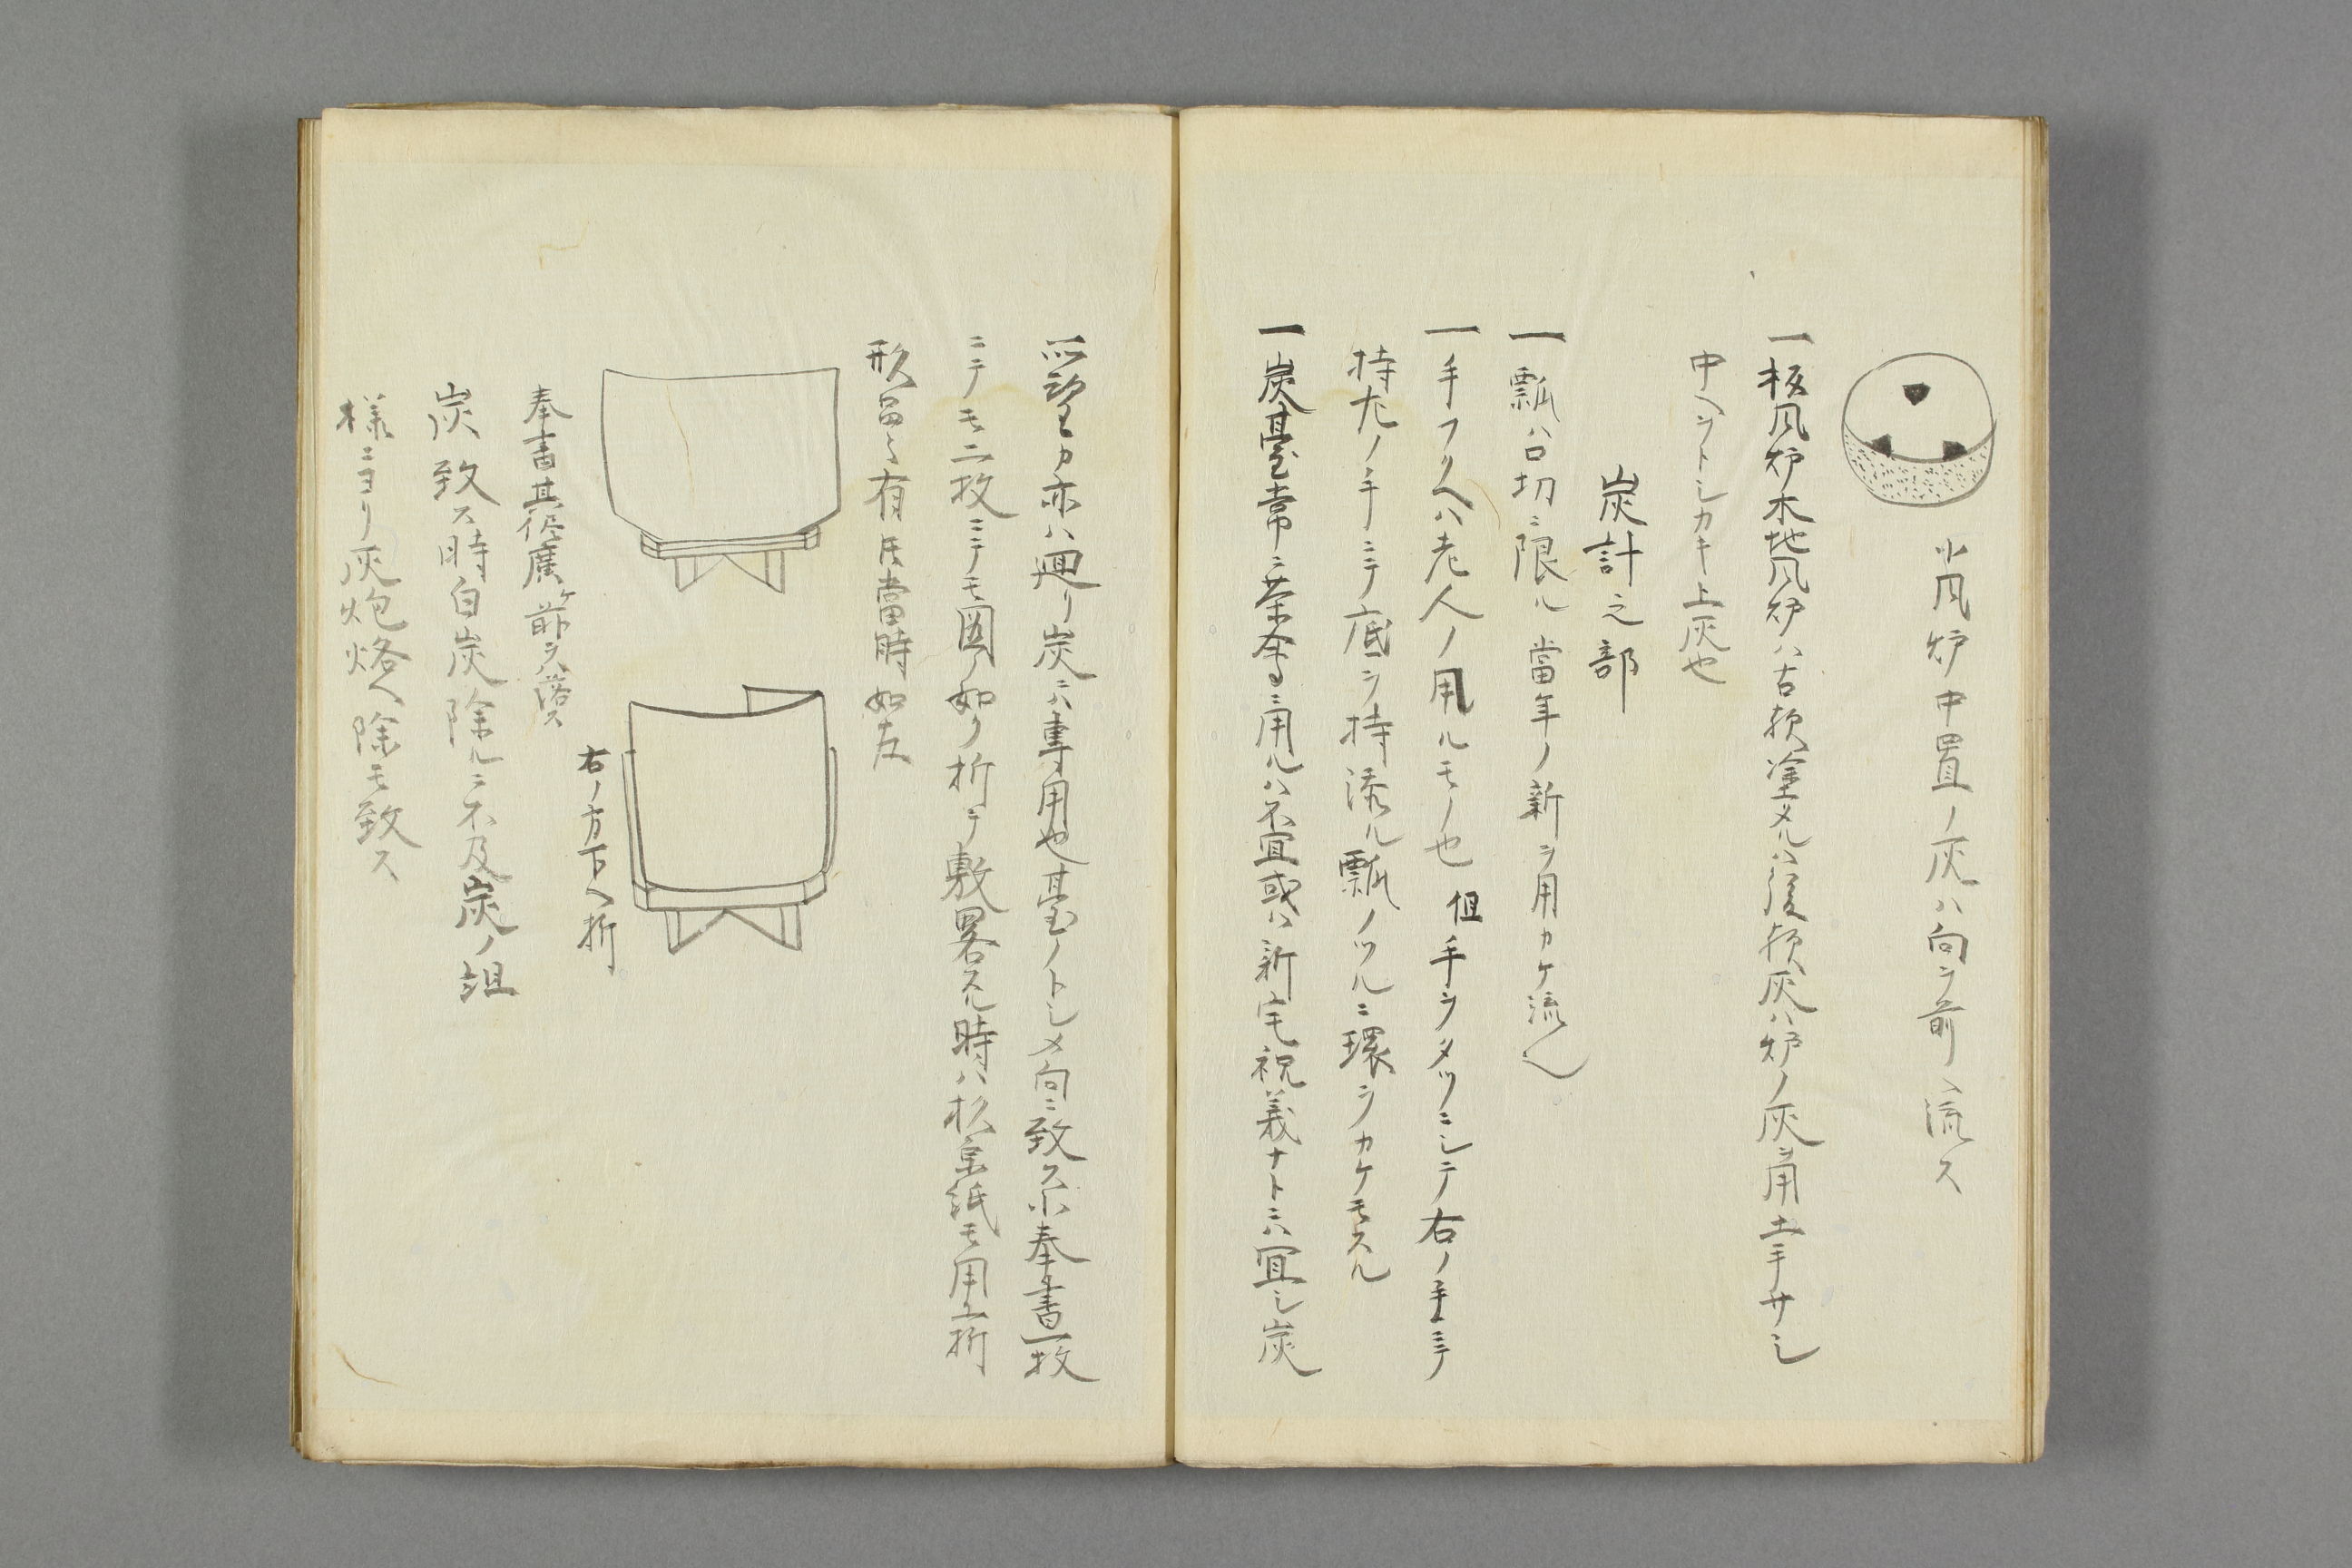 小風炉中置ノ灰ハ向ヲ前ヘ流ス
一板風炉木地風炉ハ古欤塗タルハ後欤灰ハ炉ノ灰ヲ用土手サシ
中ヘヲトシカキ上灰也
炭計之部
一瓢ハ口切ニ限ル當年ノ新ヲ用カケ流ヘ
一手フクヘハ老人ノ用ルモノ也但手ヲタツニシテ右ノ手ニテ
持左ノ手ニテ底ヲ持添ル瓢ノツルニ環ヲカケモスル
一炭臺常ニ茶會ニ用ルハ不宜或ハ新宅祝義ナトニハ宜シ炭
所望カ亦ハ廻リ炭ニハ専用也臺ノトシメ向ニ致ス小奉書一枚
ニテモ二枚ニテモ図ノ如ク折テ敷畧スル時ハ杉原紙モ用上折
形品々有氏當時如左
右ノ方下ヘ折
奉書其侭廣ケ前ヲハ落ス
炭致ス時白炭除ルニ不及炭ノ組
様ニヨリ灰炮烙ヘ除モ致ス